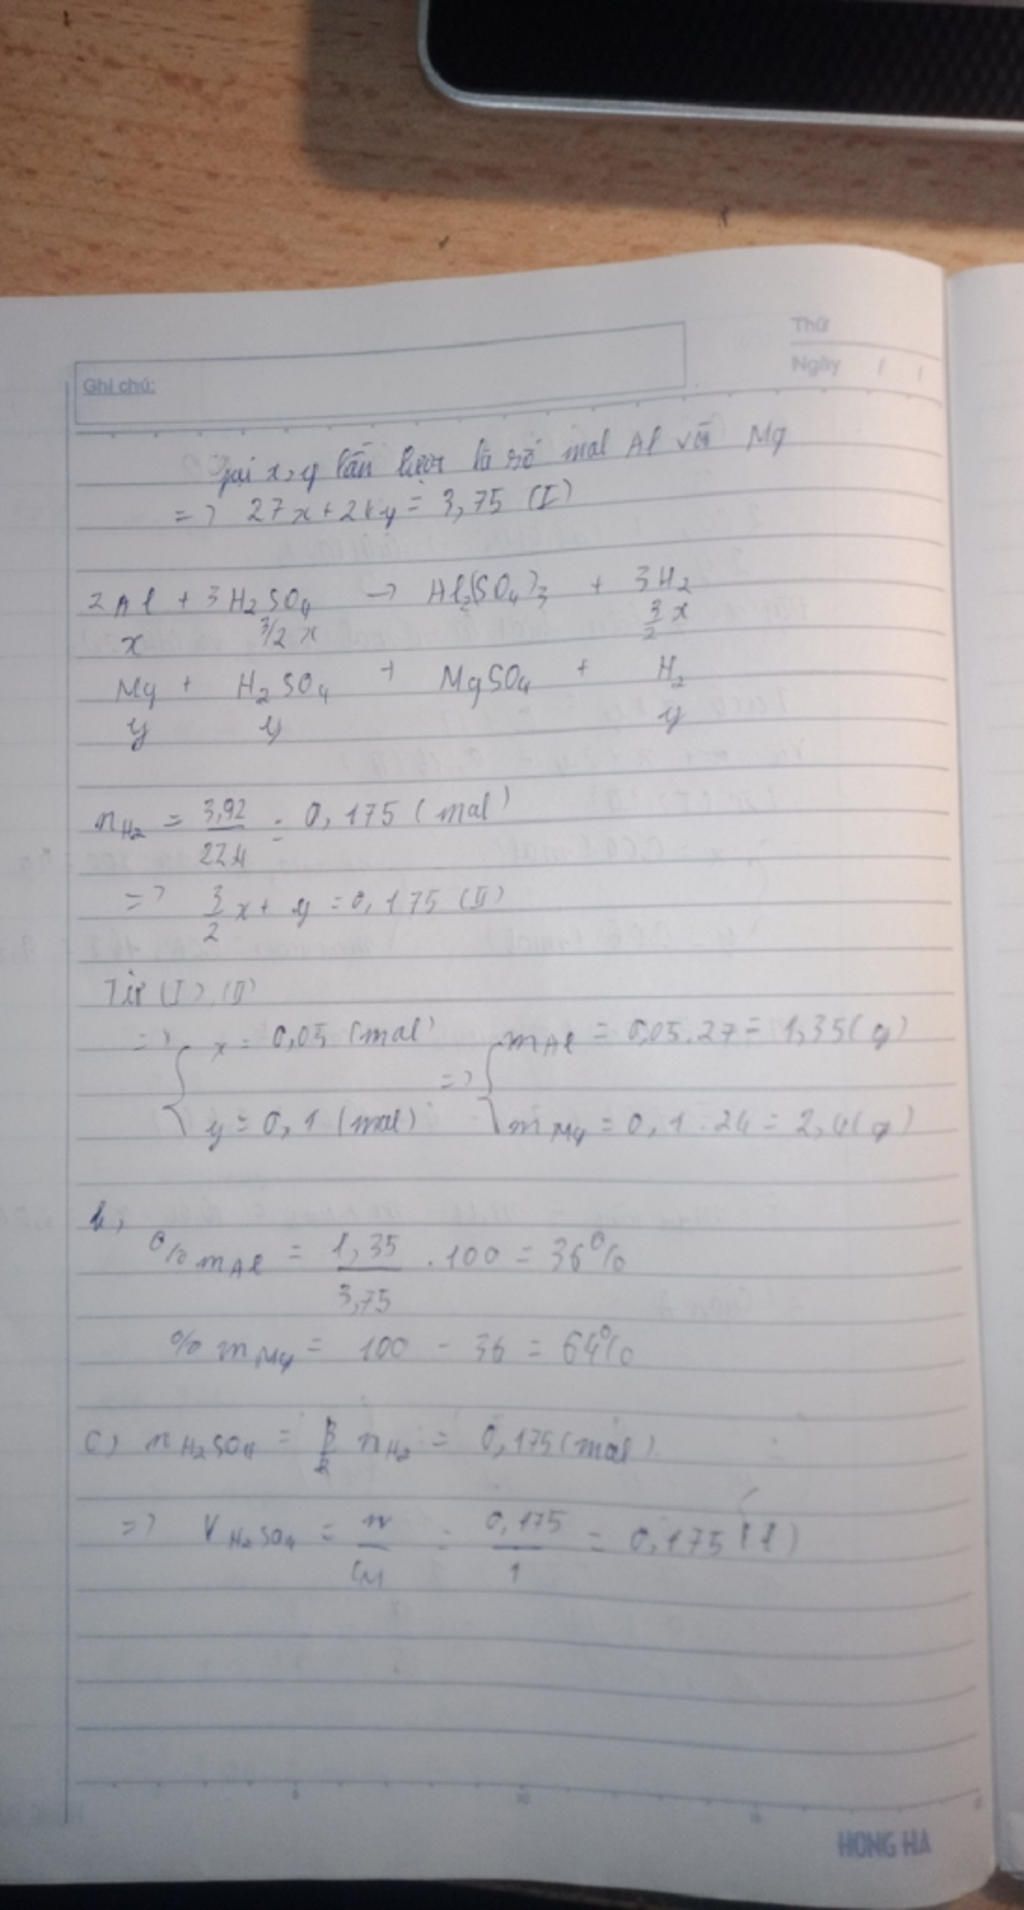 Thứ
Ngày / /
Ghi chú:
Gọi x, y lần lượt là số mol Al và Mg
=> 27x + 24y = 3,75 (I)
2Al + 3H₂SO₄ → Al₂(SO₄)₃ + 3H₂
x 3/2 x 3/2 x
Mg + H₂SO₄ → MgSO₄ + H₂
y y y
nH₂ = 3,92/22,4 = 0,175 (mol)
=> 3/2 x + y = 0,175 (II)
Từ (I), (II)
=> { x = 0,05 (mol) => { mAl = 0,05 . 27 = 1,35 (g)
y = 0,1 (mol) mMg = 0,1 . 24 = 2,4 (g)
b,
%mAl = 1,35/3,75 . 100 = 36%
%mMg = 100 - 36 = 64%
c, nH₂SO₄ = nH₂ = 0,175 (mol)
=> VH₂SO₄ = n/CM = 0,175/1 = 0,175 (l)
HONG HA